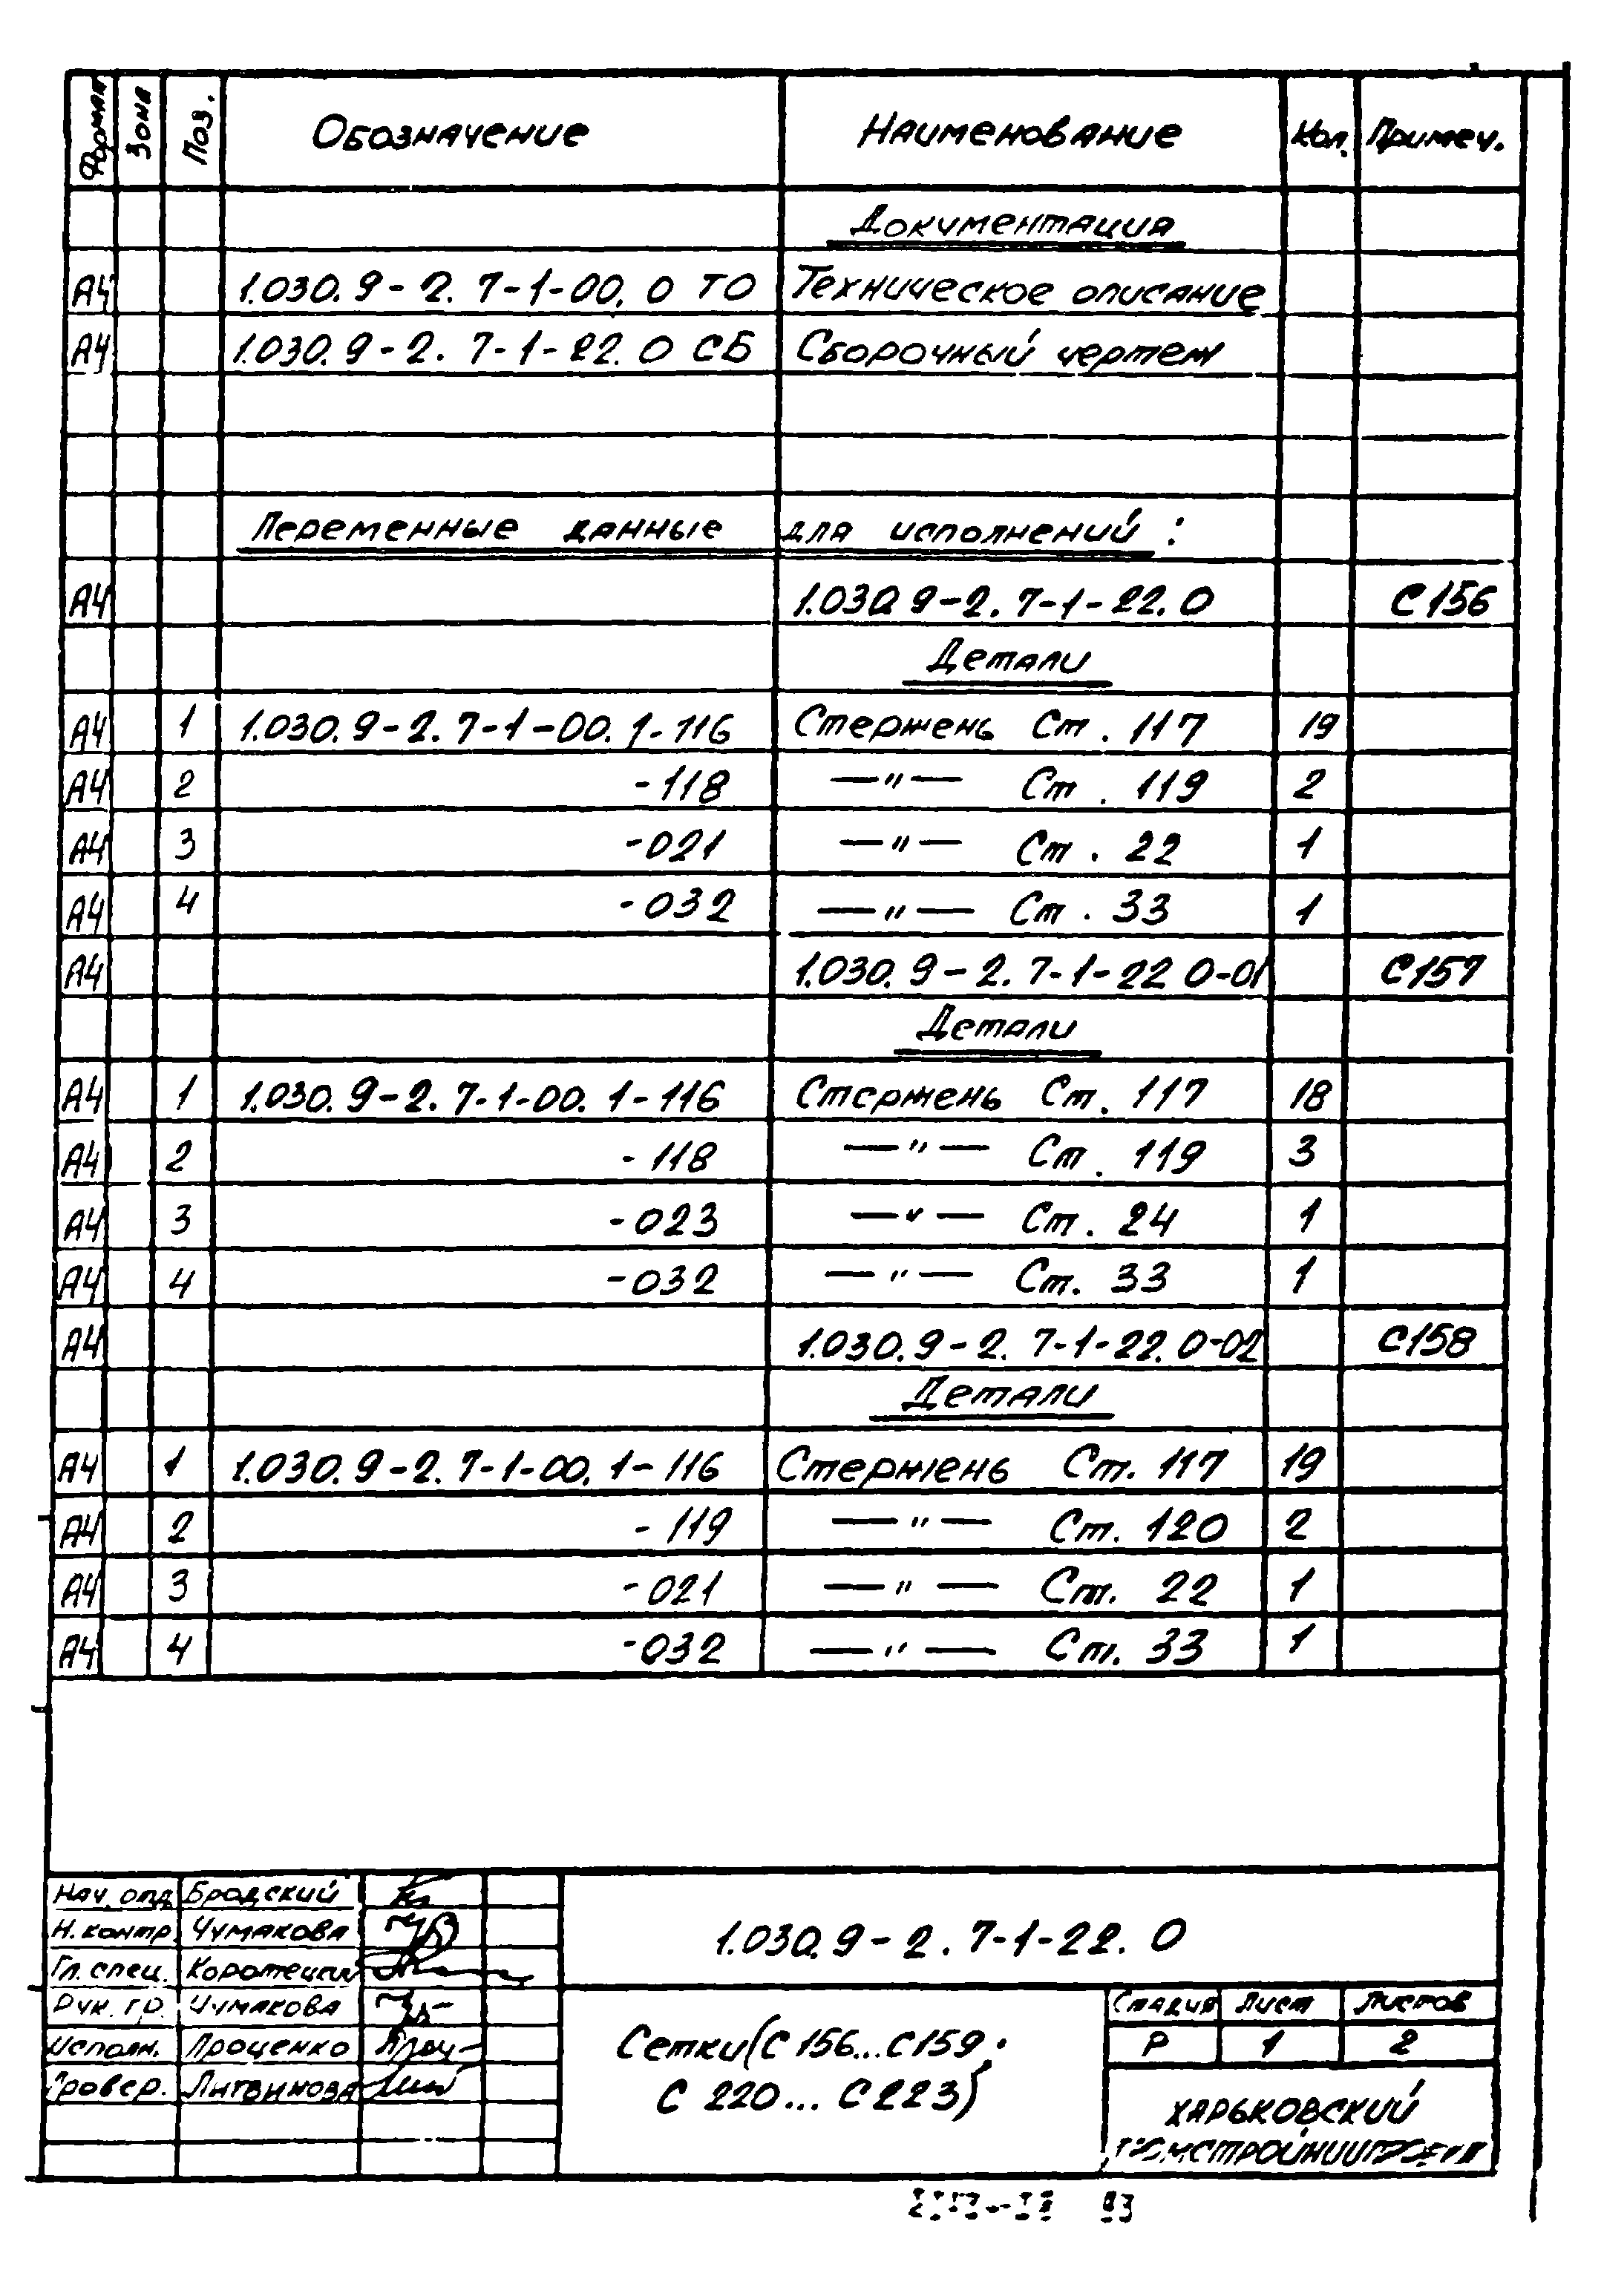 Формат Зона Поз. Обозначение Наименование Кол. Примеч.
Документация
А4 1.030.9-2.7-1-00.0 ТО Техническое описание
А4 1.030.9-2.7-1-22.0 СБ Сборочный чертеж
Переменные данные для исполнений:
А4 1.030.9-2.7-1-22.0 С156
Детали
А4 1 1.030.9-2.7-1-00.1-116 Стержень Ст. 117 19
А4 2 -118 —"— Ст. 119 2
А4 3 -021 —"— Ст. 22 1
А4 4 -032 —"— Ст. 33 1
А4 1.030.9-2.7-1-22 0-01 С157
Детали
А4 1 1.030.9-2.7-1-00.1-116 Стержень Ст. 117 18
А4 2 -118 —"— Ст. 119 3
А4 3 -023 —"— Ст. 24 1
А4 4 -032 —"— Ст. 33 1
А4 1.030.9-2.7-1-22.0-02 С158
Детали
А4 1 1.030.9-2.7-1-00.1-116 Стержень Ст. 117 19
А4 2 -119 —"— Ст. 120 2
А4 3 -021 —"— Ст. 22 1
А4 4 -032 —"— Ст. 33 1
Нач. отд Бродский
Н. контр. Чумакова
Гл. спец.
Рук. гр. Чумакова
Исполн. Проценко
Провер. Литвинова
1.030.9-2.7-1-22.0
Сетки (С 156...С159;
С 220... С 223)
Стадия Лист Листов
Р 1 2
ХАРЬКОВСКИЙ
ПРОМСТРОЙНИИПРОЕКТ